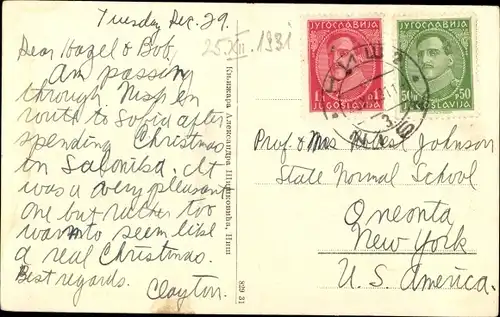 Tuesday Dec. 29.
25.XII.1931
Dear Hazel & Bob,
Am passing
through Nish en
route to Sofia after
spending Christmas
in Salonika. It
was a very pleasant
one but rather too
warm to seem like
a real Christmas.
Best regards.
Clayton.
Књижара Александра Ширковића, Ниш
829 31
ЈУГОСЛАВИЈА
JUGOSLAVIJA
ЈУГОСЛАВИЈА
50 50
JUGOSLAVIJA
Prof & Mrs Robest Johnson
State Normal School
Oneonta
New York
U. S. America.